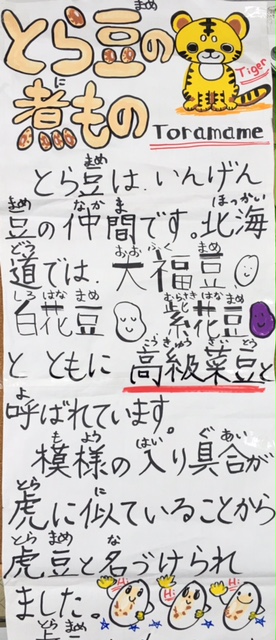 とら豆の
煮もの
Tiger
Toramame
とら豆は、いんげん
豆の仲間です。北海
道では、大福豆、
白花豆 紫花豆
と ともに 高級菜豆と
呼ばれています。
模様の入り具合が
虎に似ていることから
虎豆と名づけられ
ました。 Hi Hi Hi